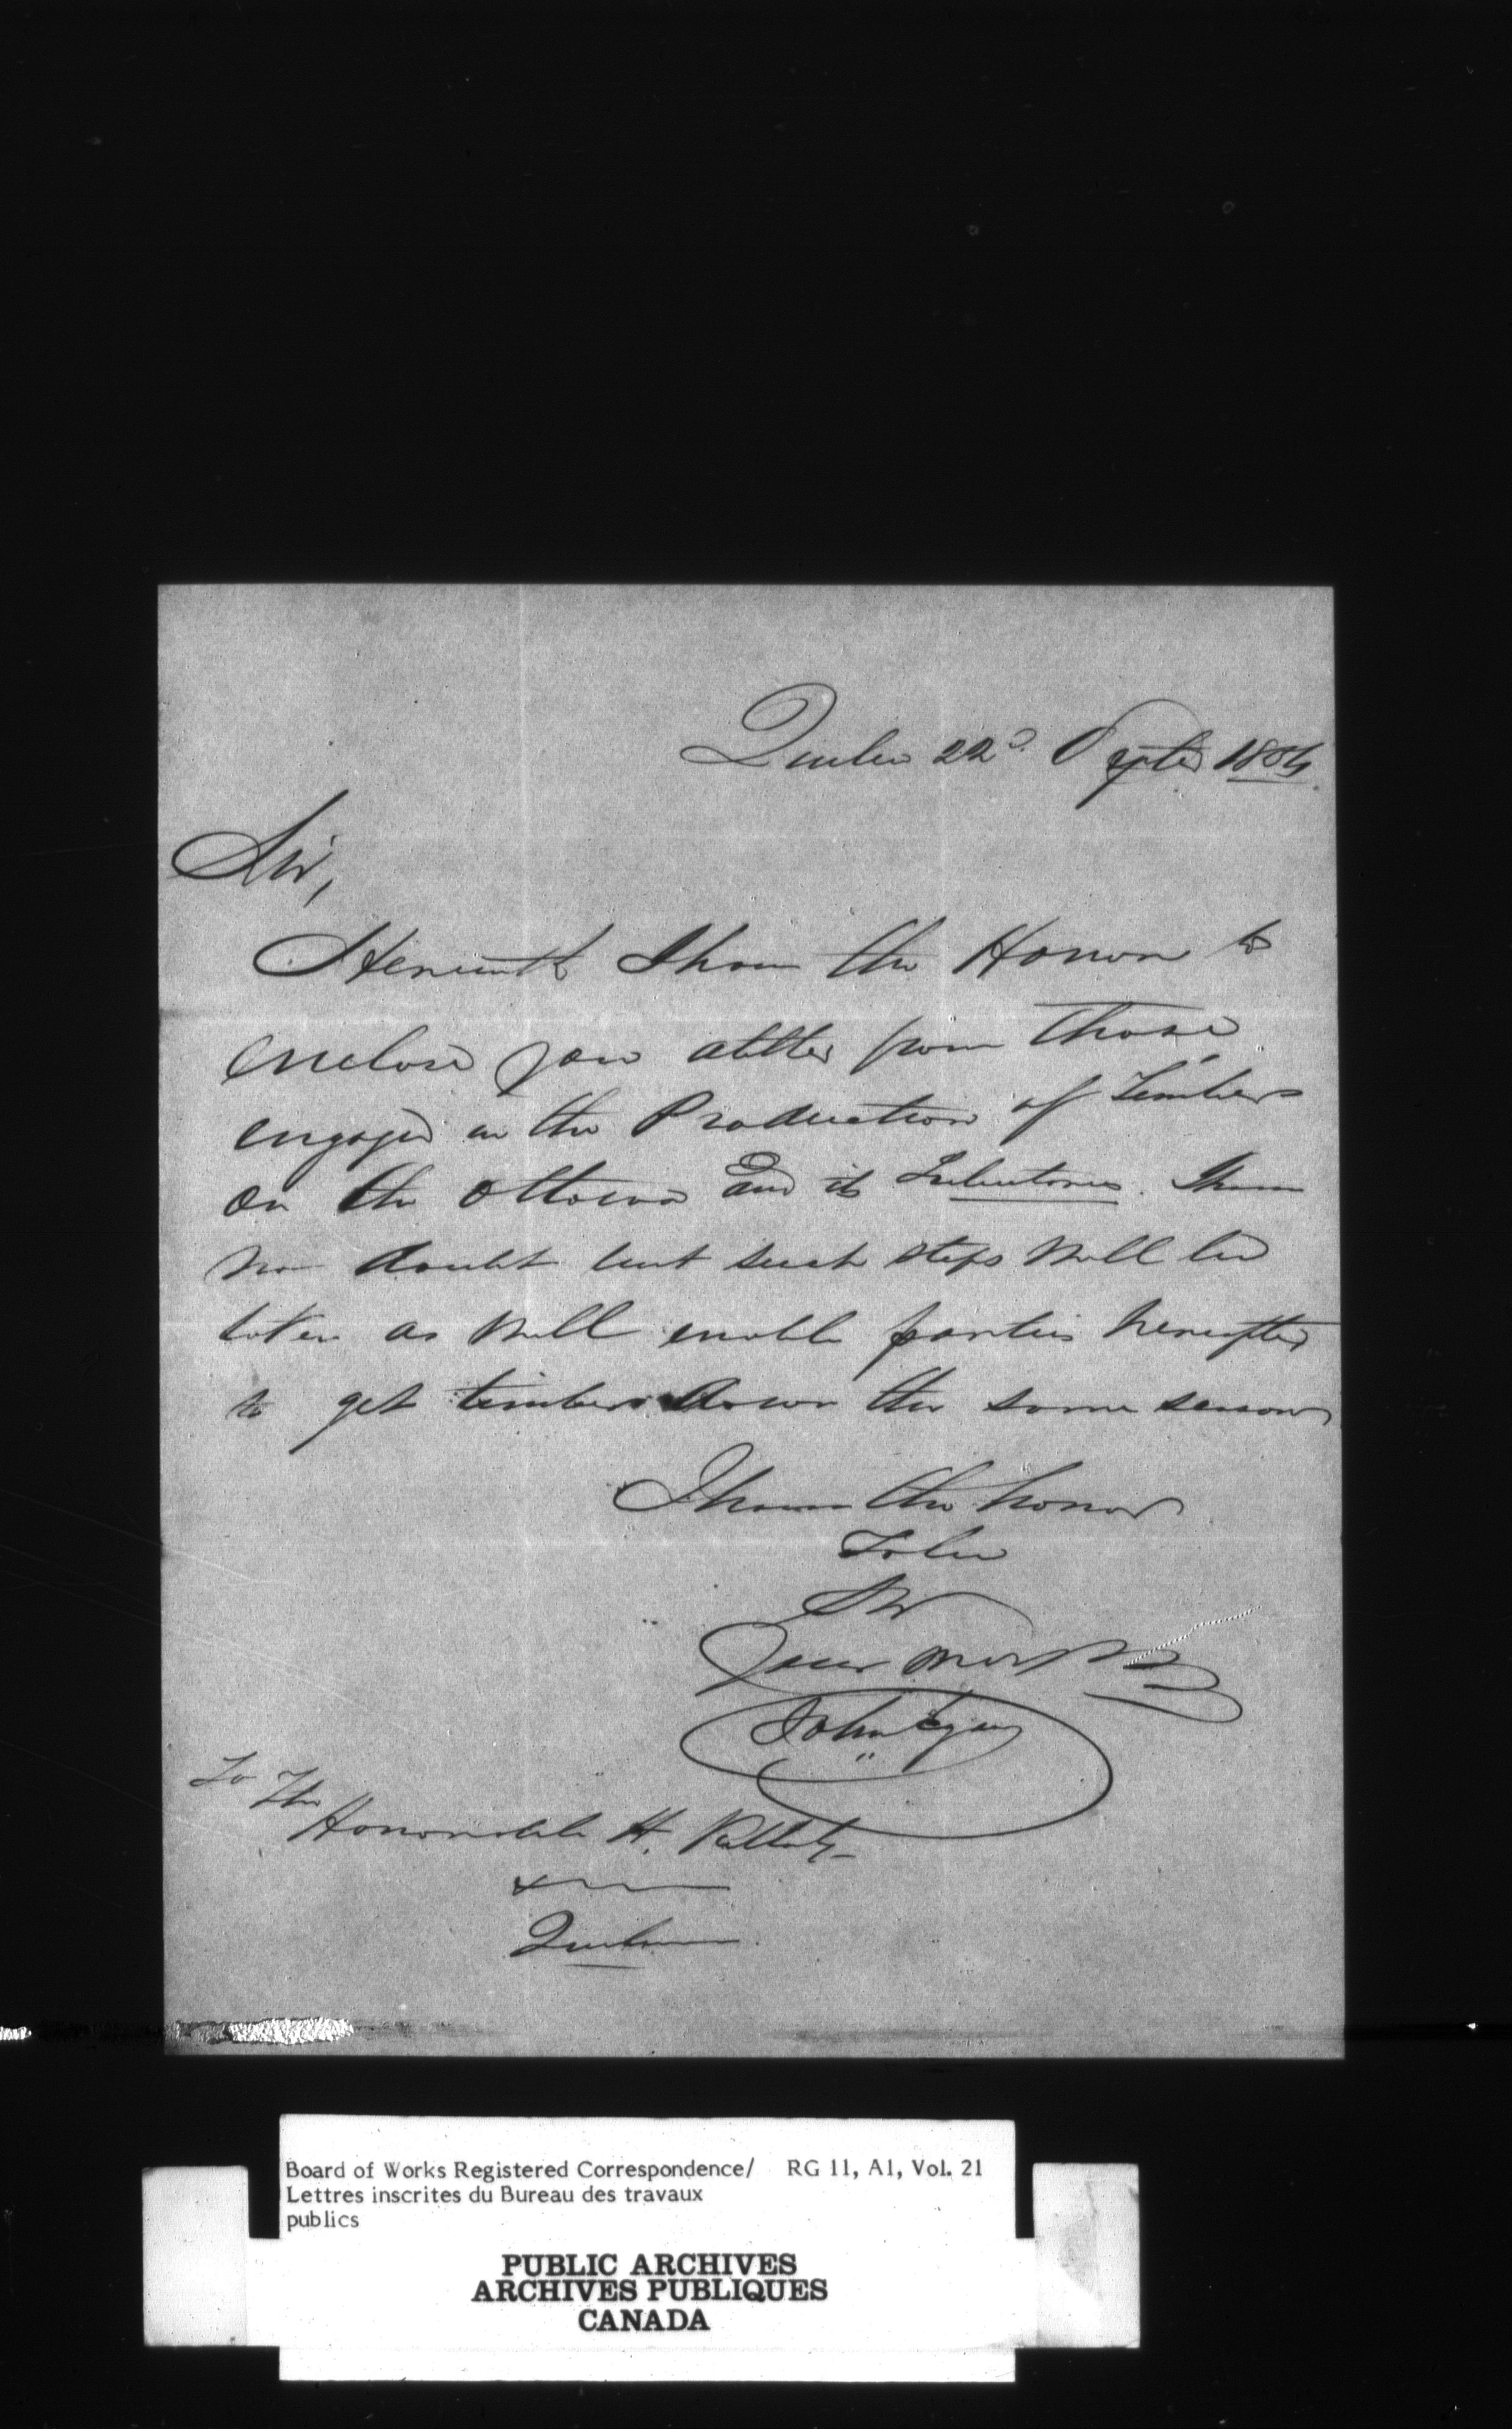 Quebec 22d Septr 1854
Sir,
Herewith I have the Honor to
enclose you a letter from those
engaged in the Production of Timber
on the Ottawa and its Tributaries. I have
no doubt but such steps will be
taken as will enable parties hereafter
to get timber down the same season
I have the honor
To be
Sir
Your
John Egan
To The
Honorable H. Killaly
Quebec
Board of Works Registered Correspondence/ RG 11, A1, Vol. 21
Lettres inscrites du Bureau des travaux
publics
PUBLIC ARCHIVES
ARCHIVES PUBLIQUES
CANADA